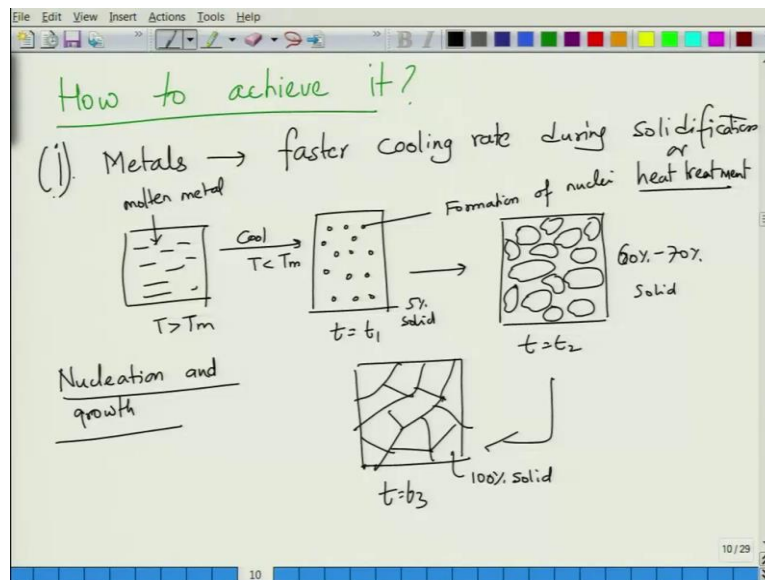 File Edit View Insert Actions Tools Help
B I
How to achieve it?
(i). Metals → faster cooling rate during solidification
or
heat treatment
molten metal
Cool
T < Tm
Formation of nuclei
T > Tm
5% solid
t = t1
60% - 70% solid
t = t2
Nucleation and
growth
100% solid
t = t3
10 / 29
10